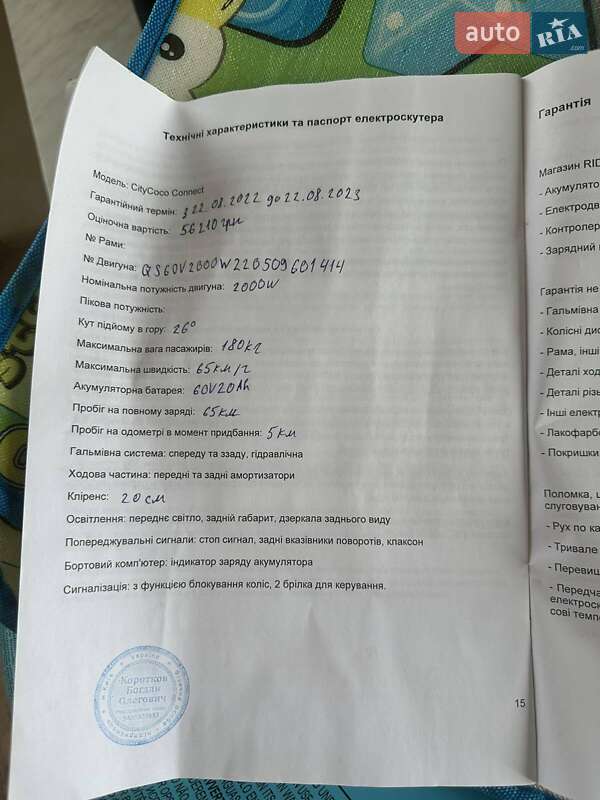 auto RIA.com
Технічні характеристики та паспорт електроскутера
Модель: CityCoco Connect
Гарантійний термін: з 22.08.2022 до 22.08.2023
Оціночна вартість: 56210 грн
№ Рами:
№ Двигуна: QS60V2000W220509601414
Номінальна потужність двигуна: 2000W
Пікова потужність:
Кут підйому в гору: 26°
Максимальна вага пасажирів: 180кг
Максимальна швидкість: 65км/г
Акумуляторна батарея: 60V20Ah
Пробіг на повному заряді: 65км
Пробіг на одометрі в момент придбання: 5км
Гальмівна система: спереду та ззаду, гідравлічна
Ходова частина: передні та задні амортизатори
Кліренс: 20см
Освітлення: переднє світло, задній габарит, дзеркала заднього виду
Попереджувальні сигнали: стоп сигнал, задні вказівники поворотів, клаксон
Бортовий комп'ютер: індикатор заряду акумулятора
Сигналізація: з функцією блокування коліс, 2 брілка для керування.
Коротков
Богдан
Олегович
15
Гарантія
Магазин RID
- Акумулято
- Електродв
- Контролер
- Зарядний
Гарантія не
- Гальмівна
- Колісні дис
- Рама, інші
- Деталі ход
- Деталі різь
- Інші електр
- Лакофарбо
- Покришки
Поломка, щ
слуговуван
- Рух по ка
- Тривале
- Перевищ
- Передча
електроси
сові темпе